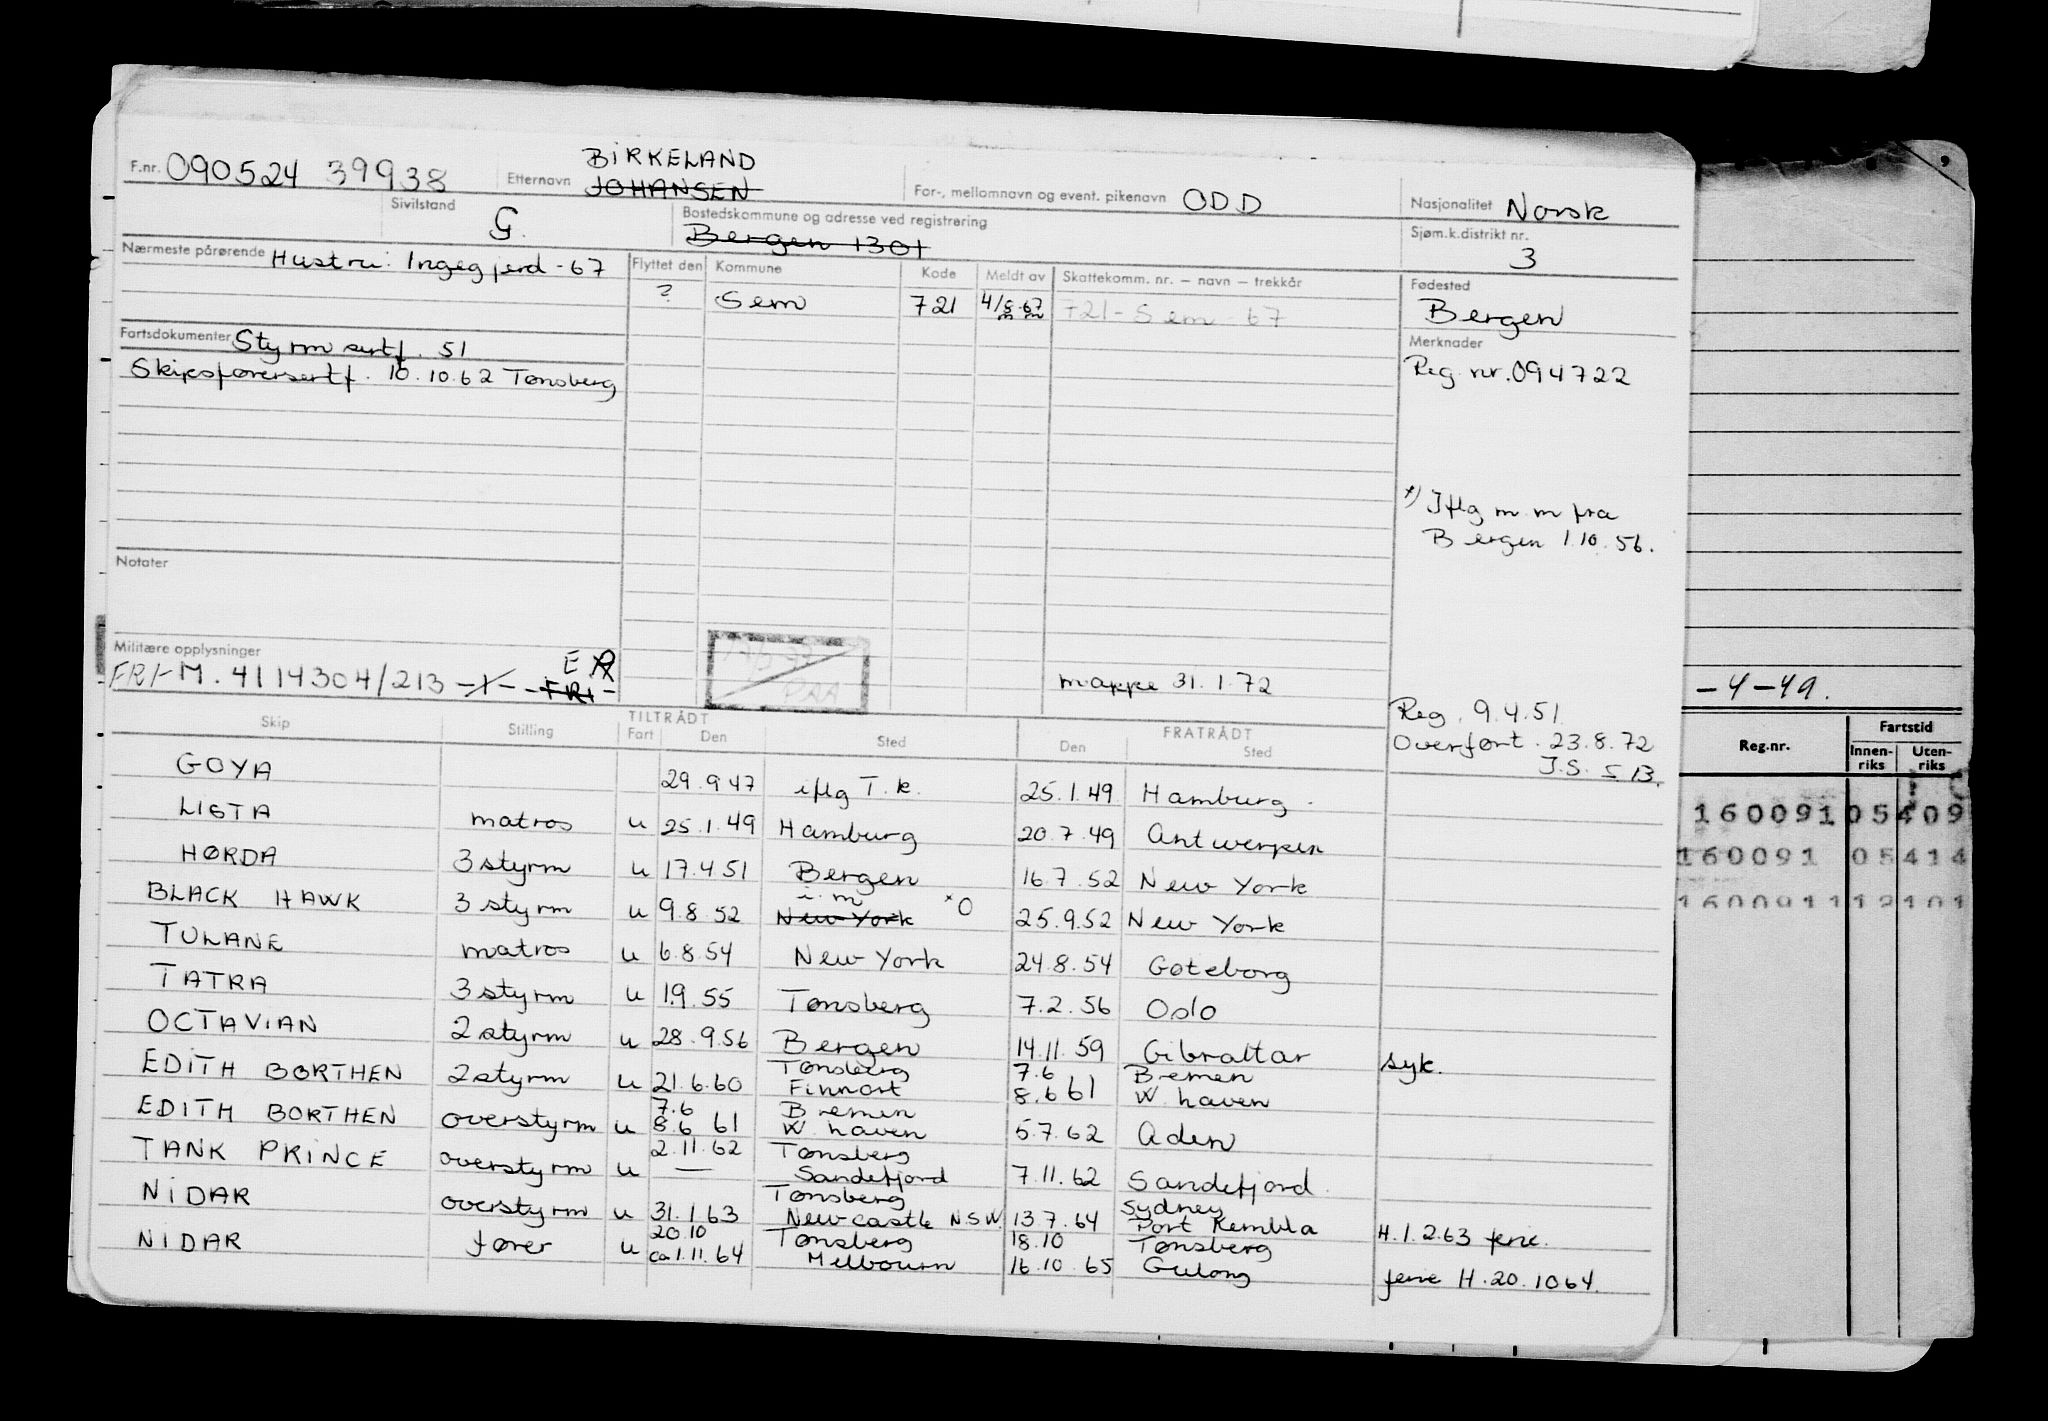 BIRKELAND
F.nr. 090524 39938 Etternavn JOHANSEN For-, mellomnavn og event. pikenavn ODD Nasjonalitet Norsk
Sivilstand G. Bostedskommune og adresse ved registrering Bergen 1301 Sjøm.k.distrikt nr. 3
Nærmeste pårørende Hustru: Ingegjerd -67 Flyttet den Kommune Kode Meldt av Skattekomm. nr. – navn – trekkår Fødested
? Sem 721 4/5-67 721 - Sem - 67 Bergen
Fartsdokumenter Styrm sertf. 51 Merknader
Skipsførersertf. 10.10.62 Tønsberg Reg. nr. 094722
*) Iflg m.m fra
Bergen 1.10.56.
Notater
Militære opplysninger
FRI-M. 4114304/213 FRI
mappe 31.1.72
-4-49.
Reg. 9.4.51
Overført. 23.8.72
J.S. S 13.
Skip Stilling TILTRÅDT Fart Den Sted FRATRÅDT Den Sted Reg.nr. Fartstid Innen-riks Uten-riks
GOYA 29.9 47 iflg T.k. 25.1.49 Hamburg.
LISTA matros u 25.1.49 Hamburg 20.7.49 Antwerpen
HØRDA 3 styrm u 17.4 51 Bergen 16.7.52 New York
BLACK HAWK 3 styrm u 9.8.52 i.m New York *O 25.9.52 New York
TULANE matros u 6.8.54 New York 24.8.54 Gøteborg
TATRA 3 styrm u 1.9.55 Tønsberg 7.2.56 Oslo
OCTAVIAN 2 styrm u 28.9.56 Bergen 14.11.59 Gibraltar syk.
EDITH BORTHEN 2 styrm u 21.6.60 Tønsberg Finnart 7.6 8.6 61 Bremen W. haven
EDITH BORTHEN overstyrm u 7.6 8.6 61 Bremen W. haven 5.7.62 Aden
TANK PRINCE overstyrm u 2.11.62 — Tønsberg Sandefjord 7.11.62 Sandefjord.
NIDAR overstyrm u 31.1.63 Tønsberg Newcastle N.S.W. 13.7.64 Sydney Port Kembla H.1.2.63 ferie.
NIDAR fører u 20.10 ca 1.11.64 Tønsberg Melbourn 18.10 16.10 65 Tønsberg Gulong ferie H.20.1064.
160091 05 409
160091 05 414
160091 112 101